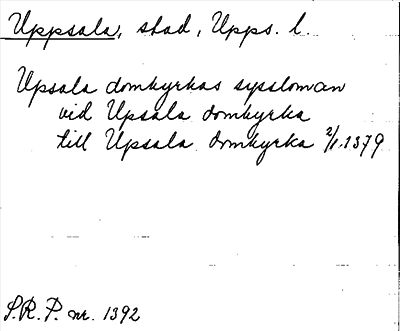 Uppsala, stad, Upps. l.
Upsala domkyrkas syssloman
vid Upsala domkyrka
till Upsala domkyrka 2/1.1379
S.R.P. nr. 1392